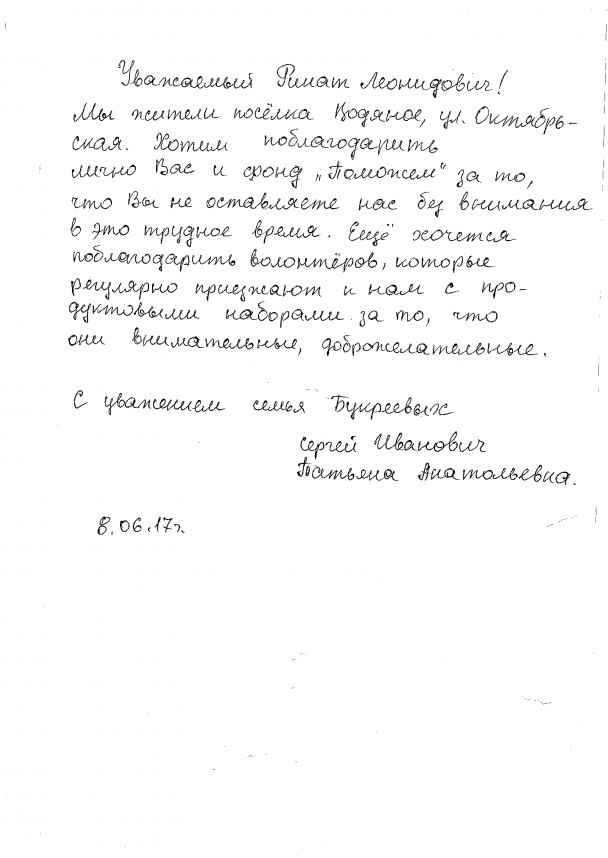 Уважаемый Ринат Леонидович!
Мы жители посёлка Водяное, ул. Октябрь-
ская. Хотим поблагодарить
лично Вас и фонд „Поможем" за то,
что Вы не оставляете нас без внимания
в это трудное время. Ещё хочется
поблагодарить волонтёров, которые
регулярно приезжают к нам с про-
дуктовыми наборами за то, что
они внимательные, доброжелательные.
С уважением семья Букреевых
Сергей Иванович
Татьяна Анатольевна.
8.06.17г.